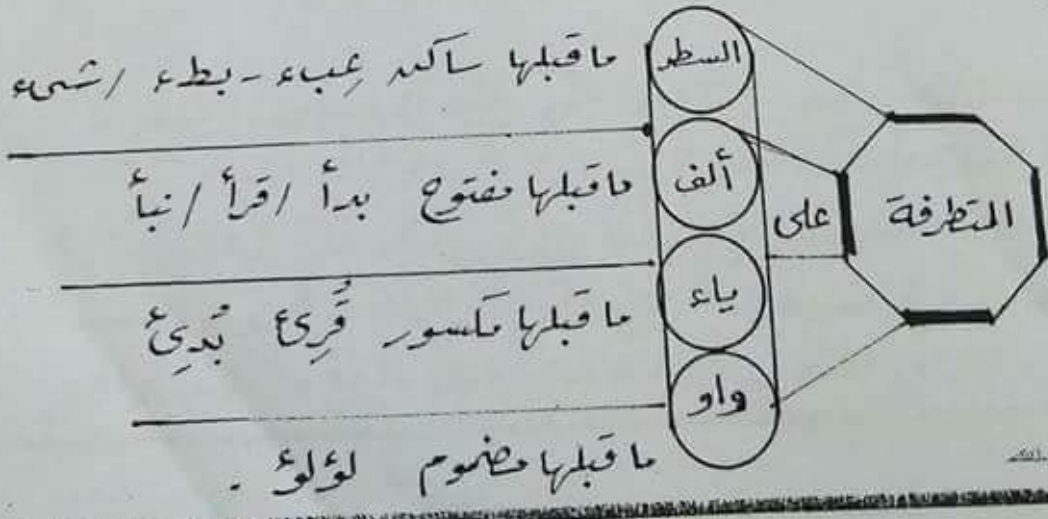 المتطرفة
على
السطر ما قبلها ساكن عِبء - بطء / شىء
ألف ما قبلها مفتوح بدأ / قرأ / نبأ
ياء ما قبلها مكسور قُرِئ بُدِئ
واو ما قبلها مضموم لؤلؤ .